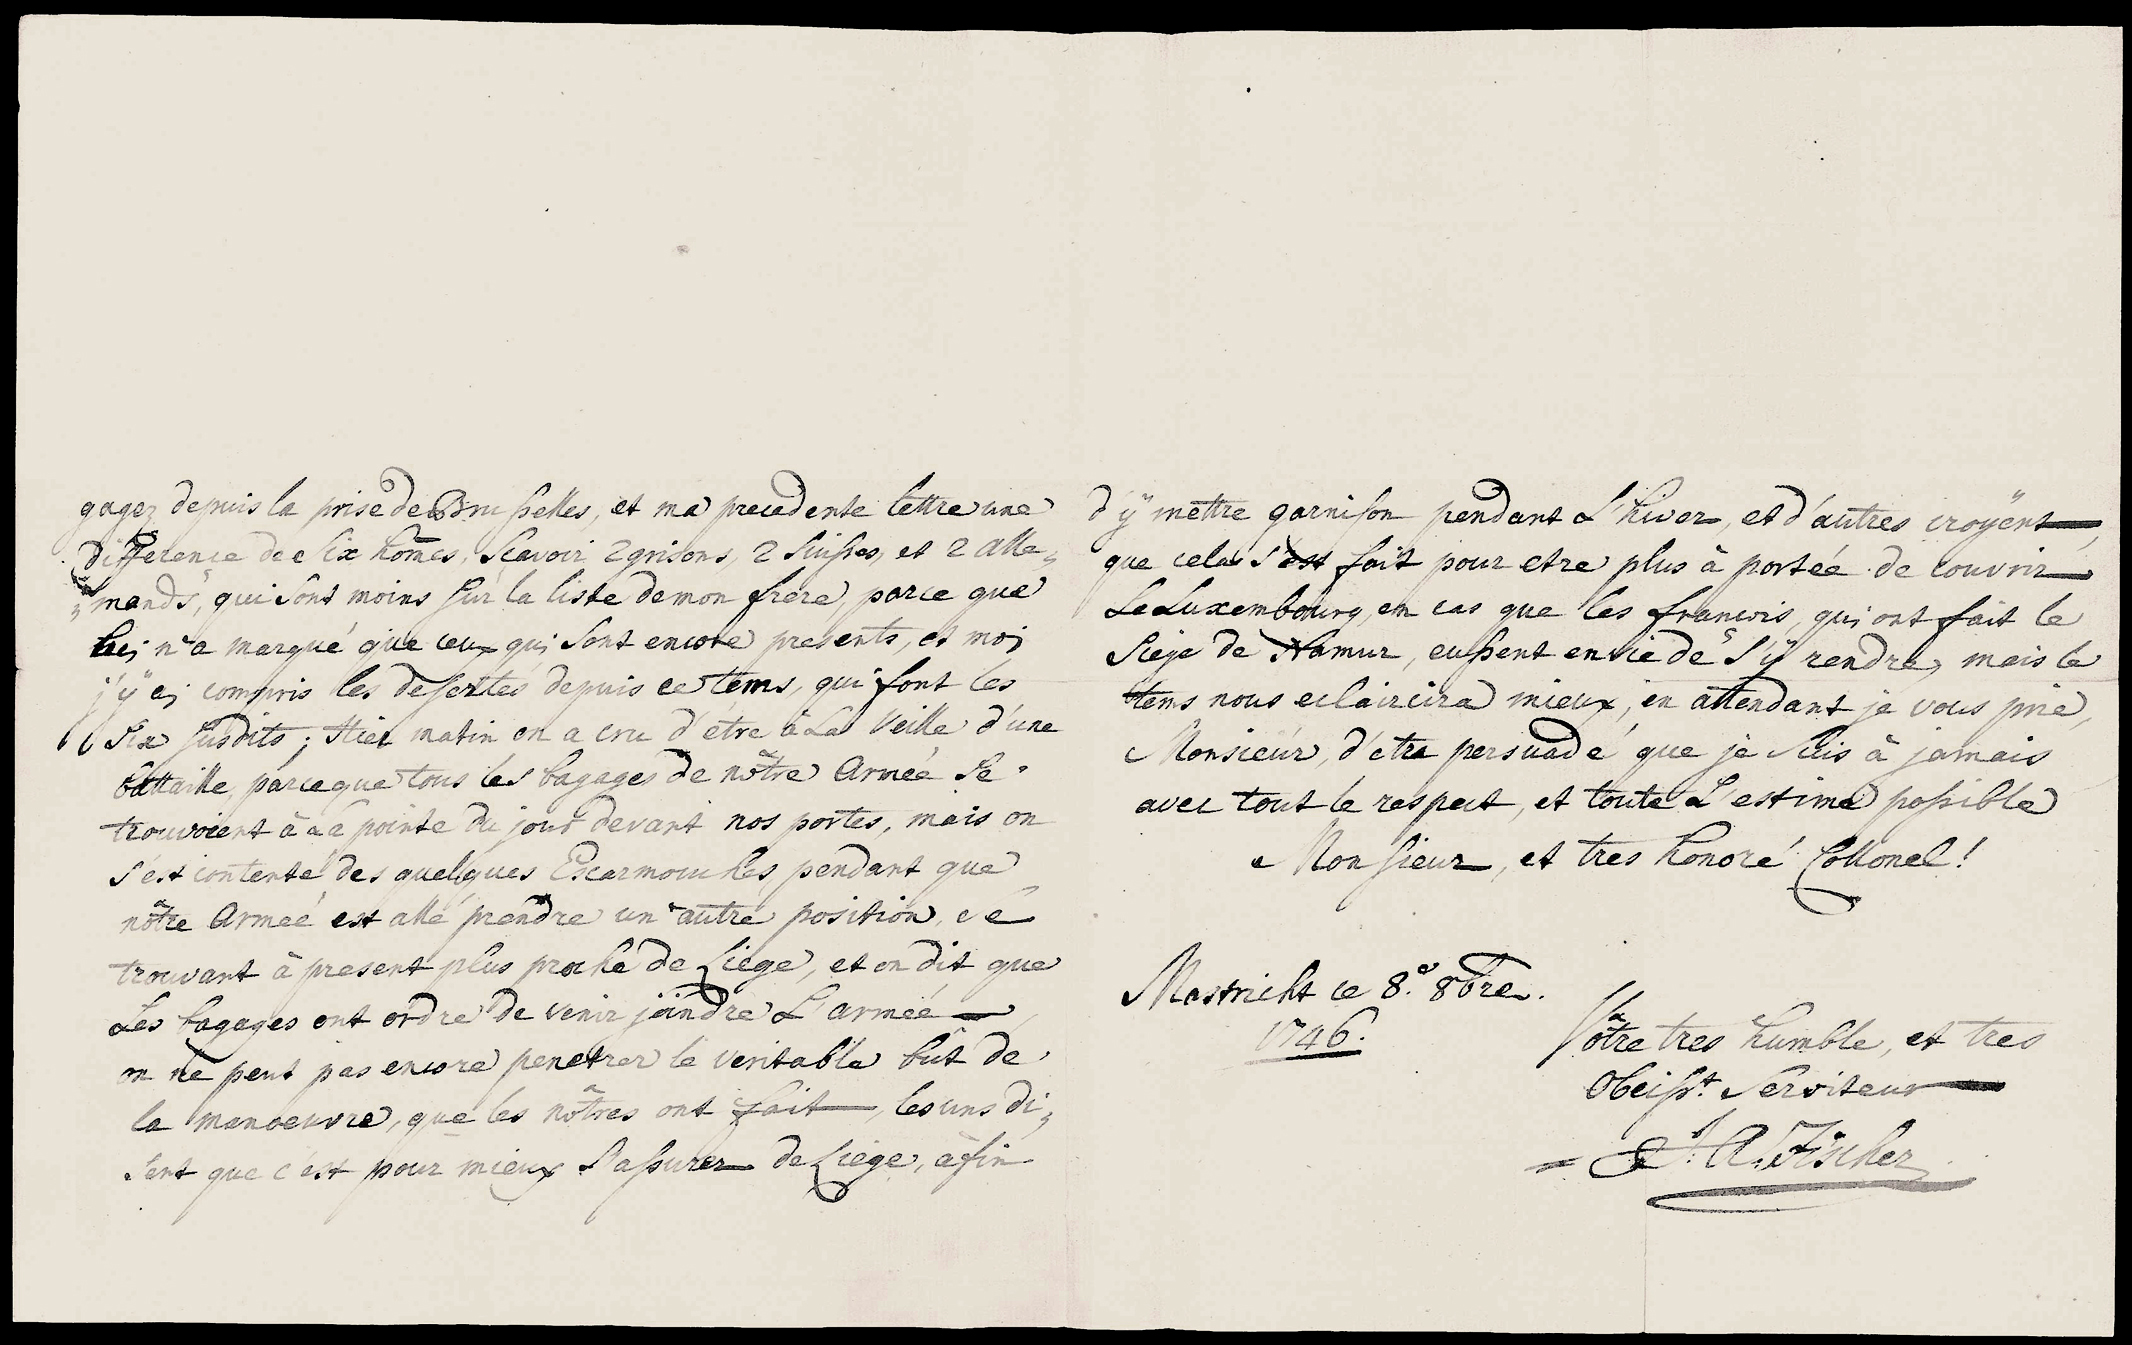 gagez depuis la prise de Brusselles, et ma precedente lettre une
difference de six hom̃es, scavoir 2 grisons, 2 suisses, et 2 alle„
„mands, qui sont moins sur la liste de mon frere, parce que
luj n'a marqué que ceux quj sont encore presents, et moj
j'ÿ ej compris les desertés depuis ce tems, qui font les
six susdits; Hier matin on a cru d'etre à la veille d'une
battaille, parceque tous les bagages de nôtre Armeé se
trouvoient à la pointe du jour devant nos portes, mais on
s'est contenté des quelques Escarmouches, pendant que
nôtre Armeé est allé prendre un'autre position, se
trouvant à present plus proche de Liege, et on dit que
Les bagages ont ordre de venir joindre L'armeé,
on ne peut pas encore penetrer le veritable but de
la manoeuvre, que les nôtres ont fait, les uns di„
sent que c'est pour mieux s'assurer de Liege, afin
d'ÿ mettre garnison pendant L'hiver, et d'autres croÿent,
que cela s'est fait pour etre plus à porteé de couvrir
Le Luxembourg, en cas que les francois, quj ont fait le
siege de Namur, eussent envie de s'ÿ rendre, mais le
tems nous eclaircira mieux, en attendant je vous prie,
Monsieur, d'etre persuadé que je suis à jamais
avec tout le respect, et toute L'estime possible
Monsieur, et tres honoré Collonel!
Mastricht ce 8.e 8bre.
1746.
Vôtre tres humble, et tres
Obeisst. Serviteur
A. Fischer